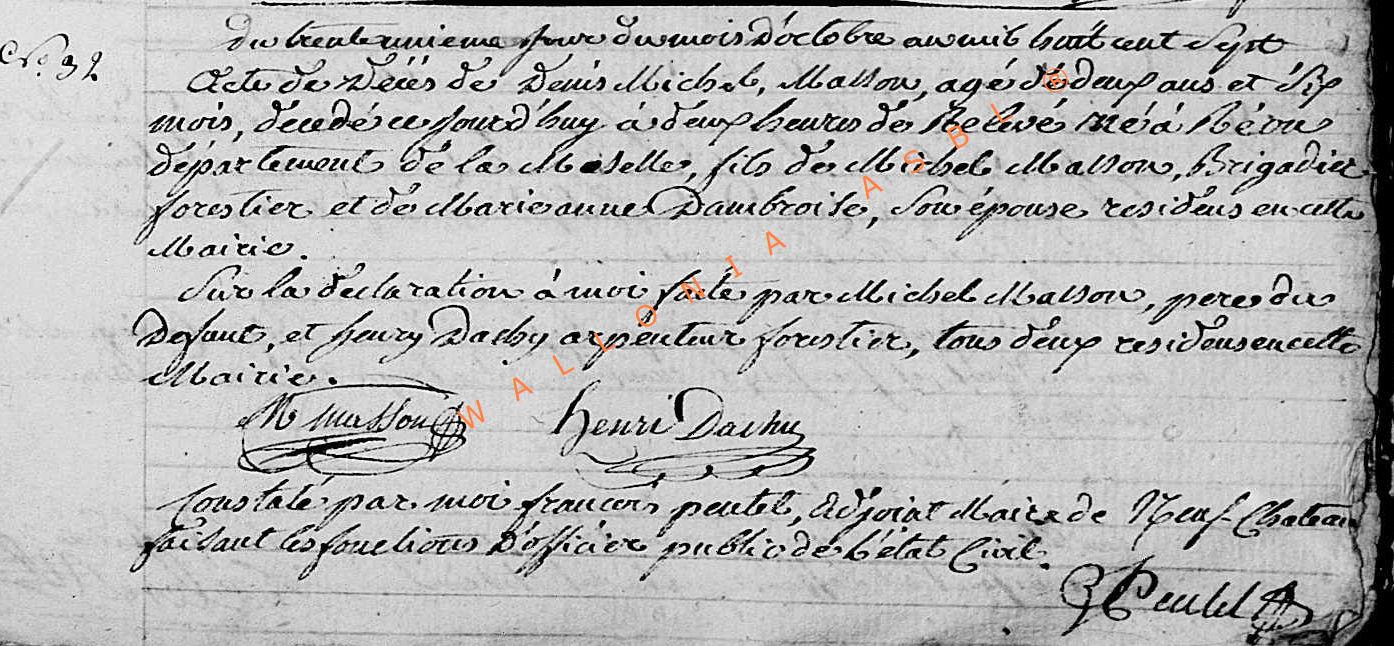 No. 32
du trente unieme jour du mois d'octobre an mil huit cent sept
Acte de décès de Denis Michel, Masson, agé de deux ans et Six
mois, decedé ce jourd'huy à deux heures de Relevé né á
département de la Moselle, fils de Michel Masson, Brigadier
forestier et de Marie anne Dambroise, Son épouse residens en cette
Mairie.
Sur la déclaration à moi faite par Michel Masson, pere du
Defunt, et henry Dachy arpenteur forestier, tous deux residens en cette
Mairie.
M Masson Henri Dachy
Constaté par moi françois pentel, Adjoint Maire de Neuf-Chateau
faisant les fonctions D'officier public de l'état Civil.
Pentel
WALLONIA ASBL ®